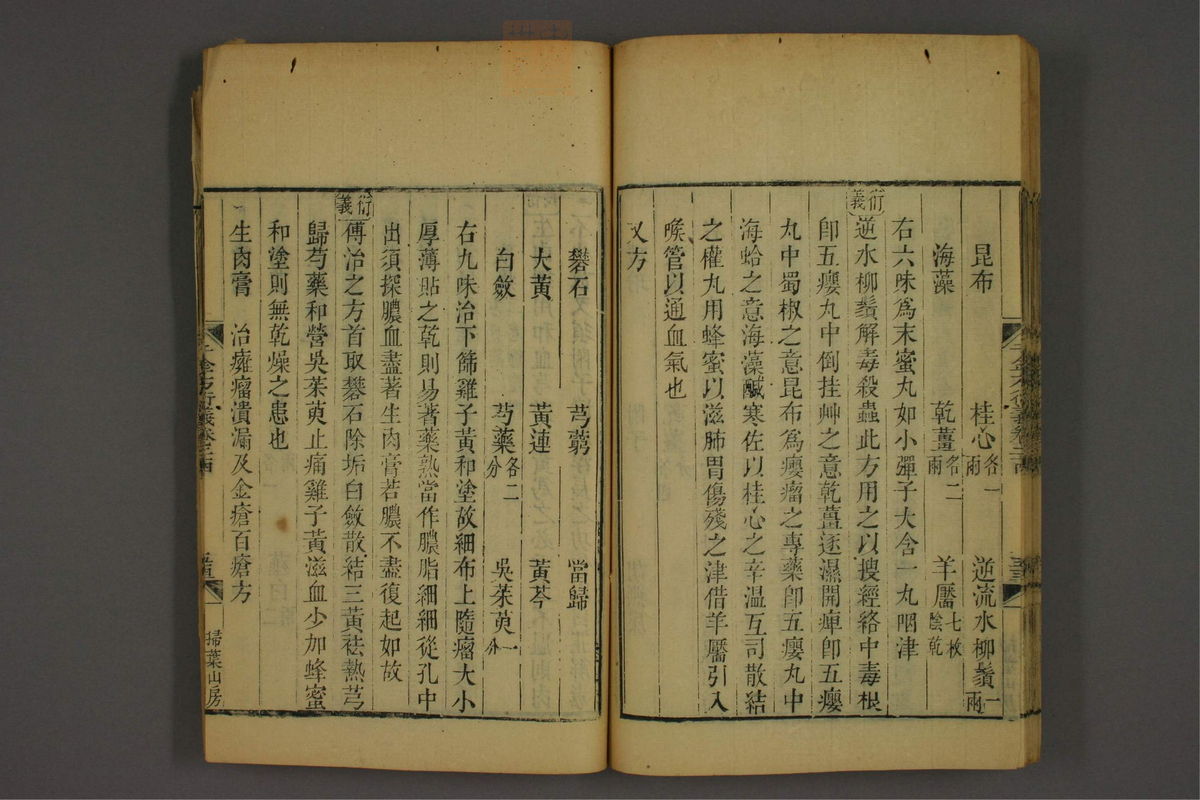 昆布　桂心各一兩　逆流水柳鬚一兩
海藻　乾薑各二兩　羊靨七枚陰乾
右六味爲末蜜丸如小彈子大含一丸咽津
衍義
逆水柳鬚解毒殺蟲此方用之以搜經絡中毒根
卽五癭丸中倒挂艸之意乾薑逐濕開痺卽五癭
丸中蜀椒之意昆布爲癭瘤之專藥卽五癭丸中
海蛤之意海藻鹹寒佐以桂心之辛温互司散結
之權丸用蜂蜜以滋肺胃傷殘之津借羊靨引入
喉管以通血氣也
又方
礬石　芎藭　當歸
大黄　黄連　黄芩
白斂　芍藥各二分　吳茱萸一分
右九味治下篩雞子黄和塗故細布上隨瘤大小
厚薄貼之乾則易著藥熟當作膿脂細細從孔中
出須探膿血盡著生肉膏若膿不盡復起如故
衍義
傅治之方首取礬石除垢白斂散結三黄祛熱芎
歸芍藥和營吳茱萸止痛雞子黄滋血少加蜂蜜
和塗則無乾燥之患也
生肉膏　治癰瘤潰漏及金瘡百瘡方
千金方衍義卷二十四
掃葉山房